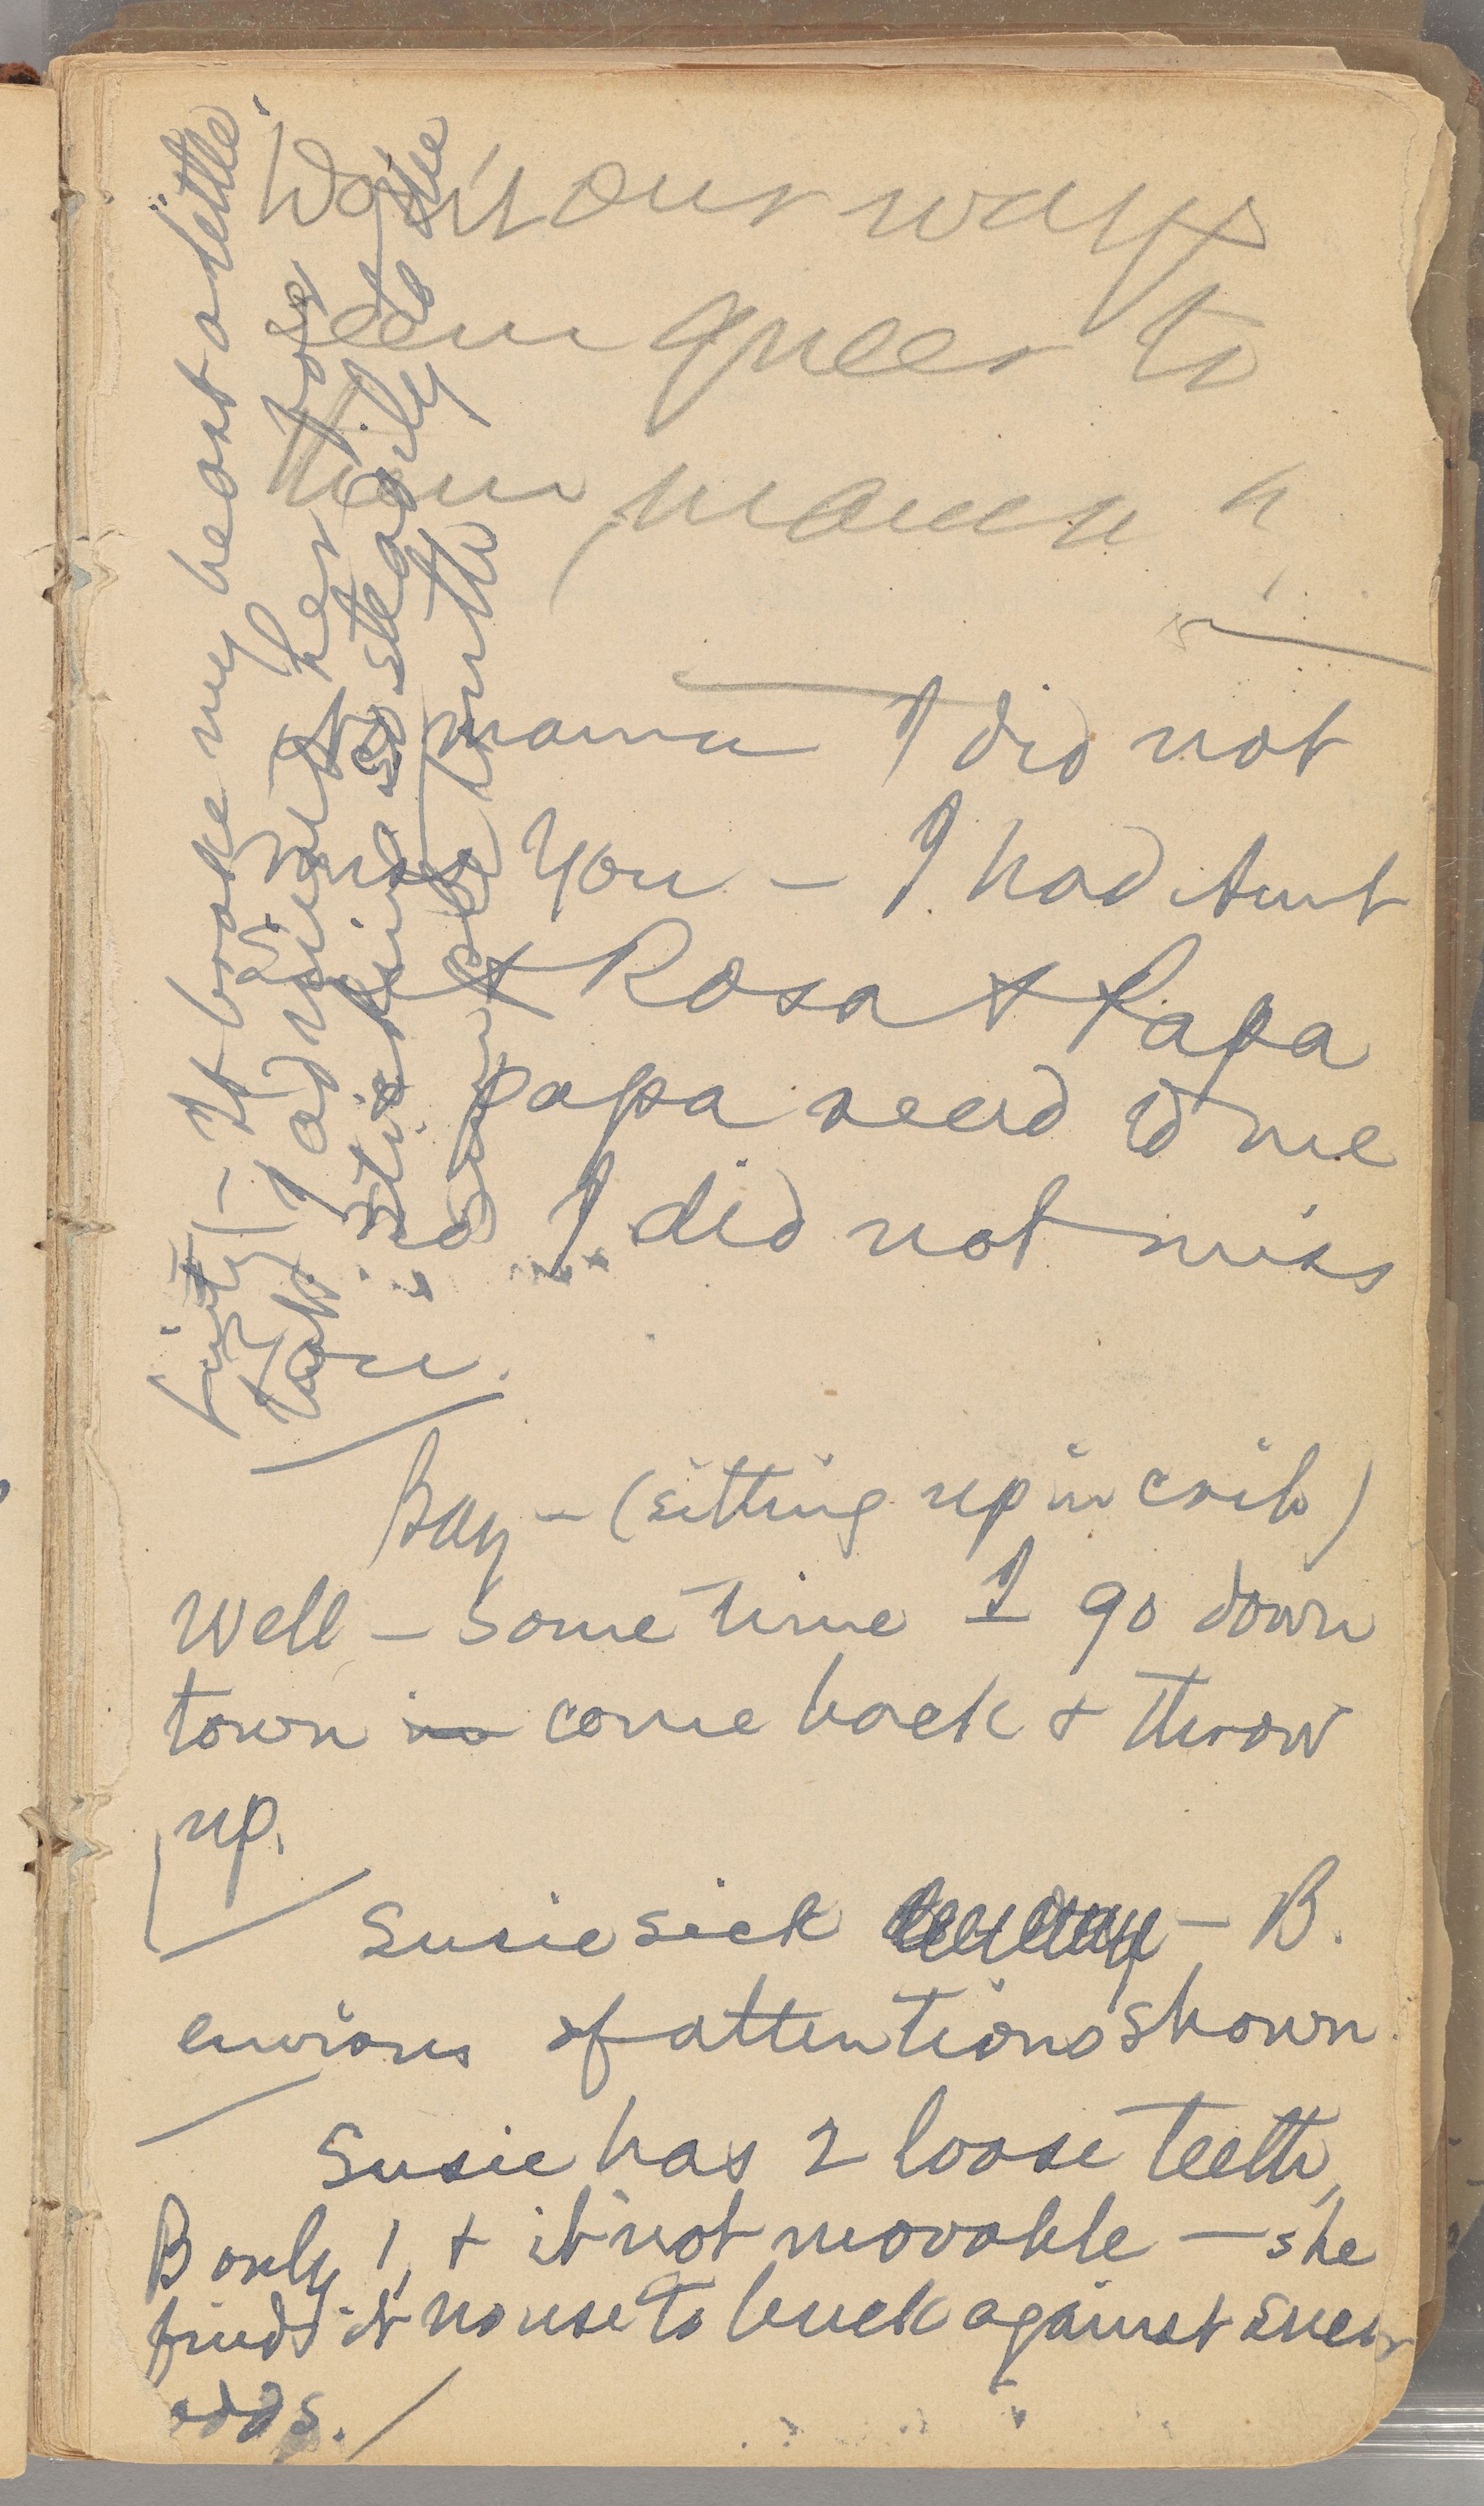 Won't our ways
seem queer to
them, mamma?
mamma I did not
miss you — I had Aunt
+ Rosa + Papa
papa read to me
no I did not miss
you.
Bay — (sitting up in crib)
Well — sometime I go down
town in come back + throw
up.
Susie sick — B.
envious of attentions shown.
Susie has 2 loose teeth,
B only 1, + it not movable — she
finds it no use to buck against such
odds.
(— It broke my heart a little
but I admired her for
sticking so steadily to the
simple truth